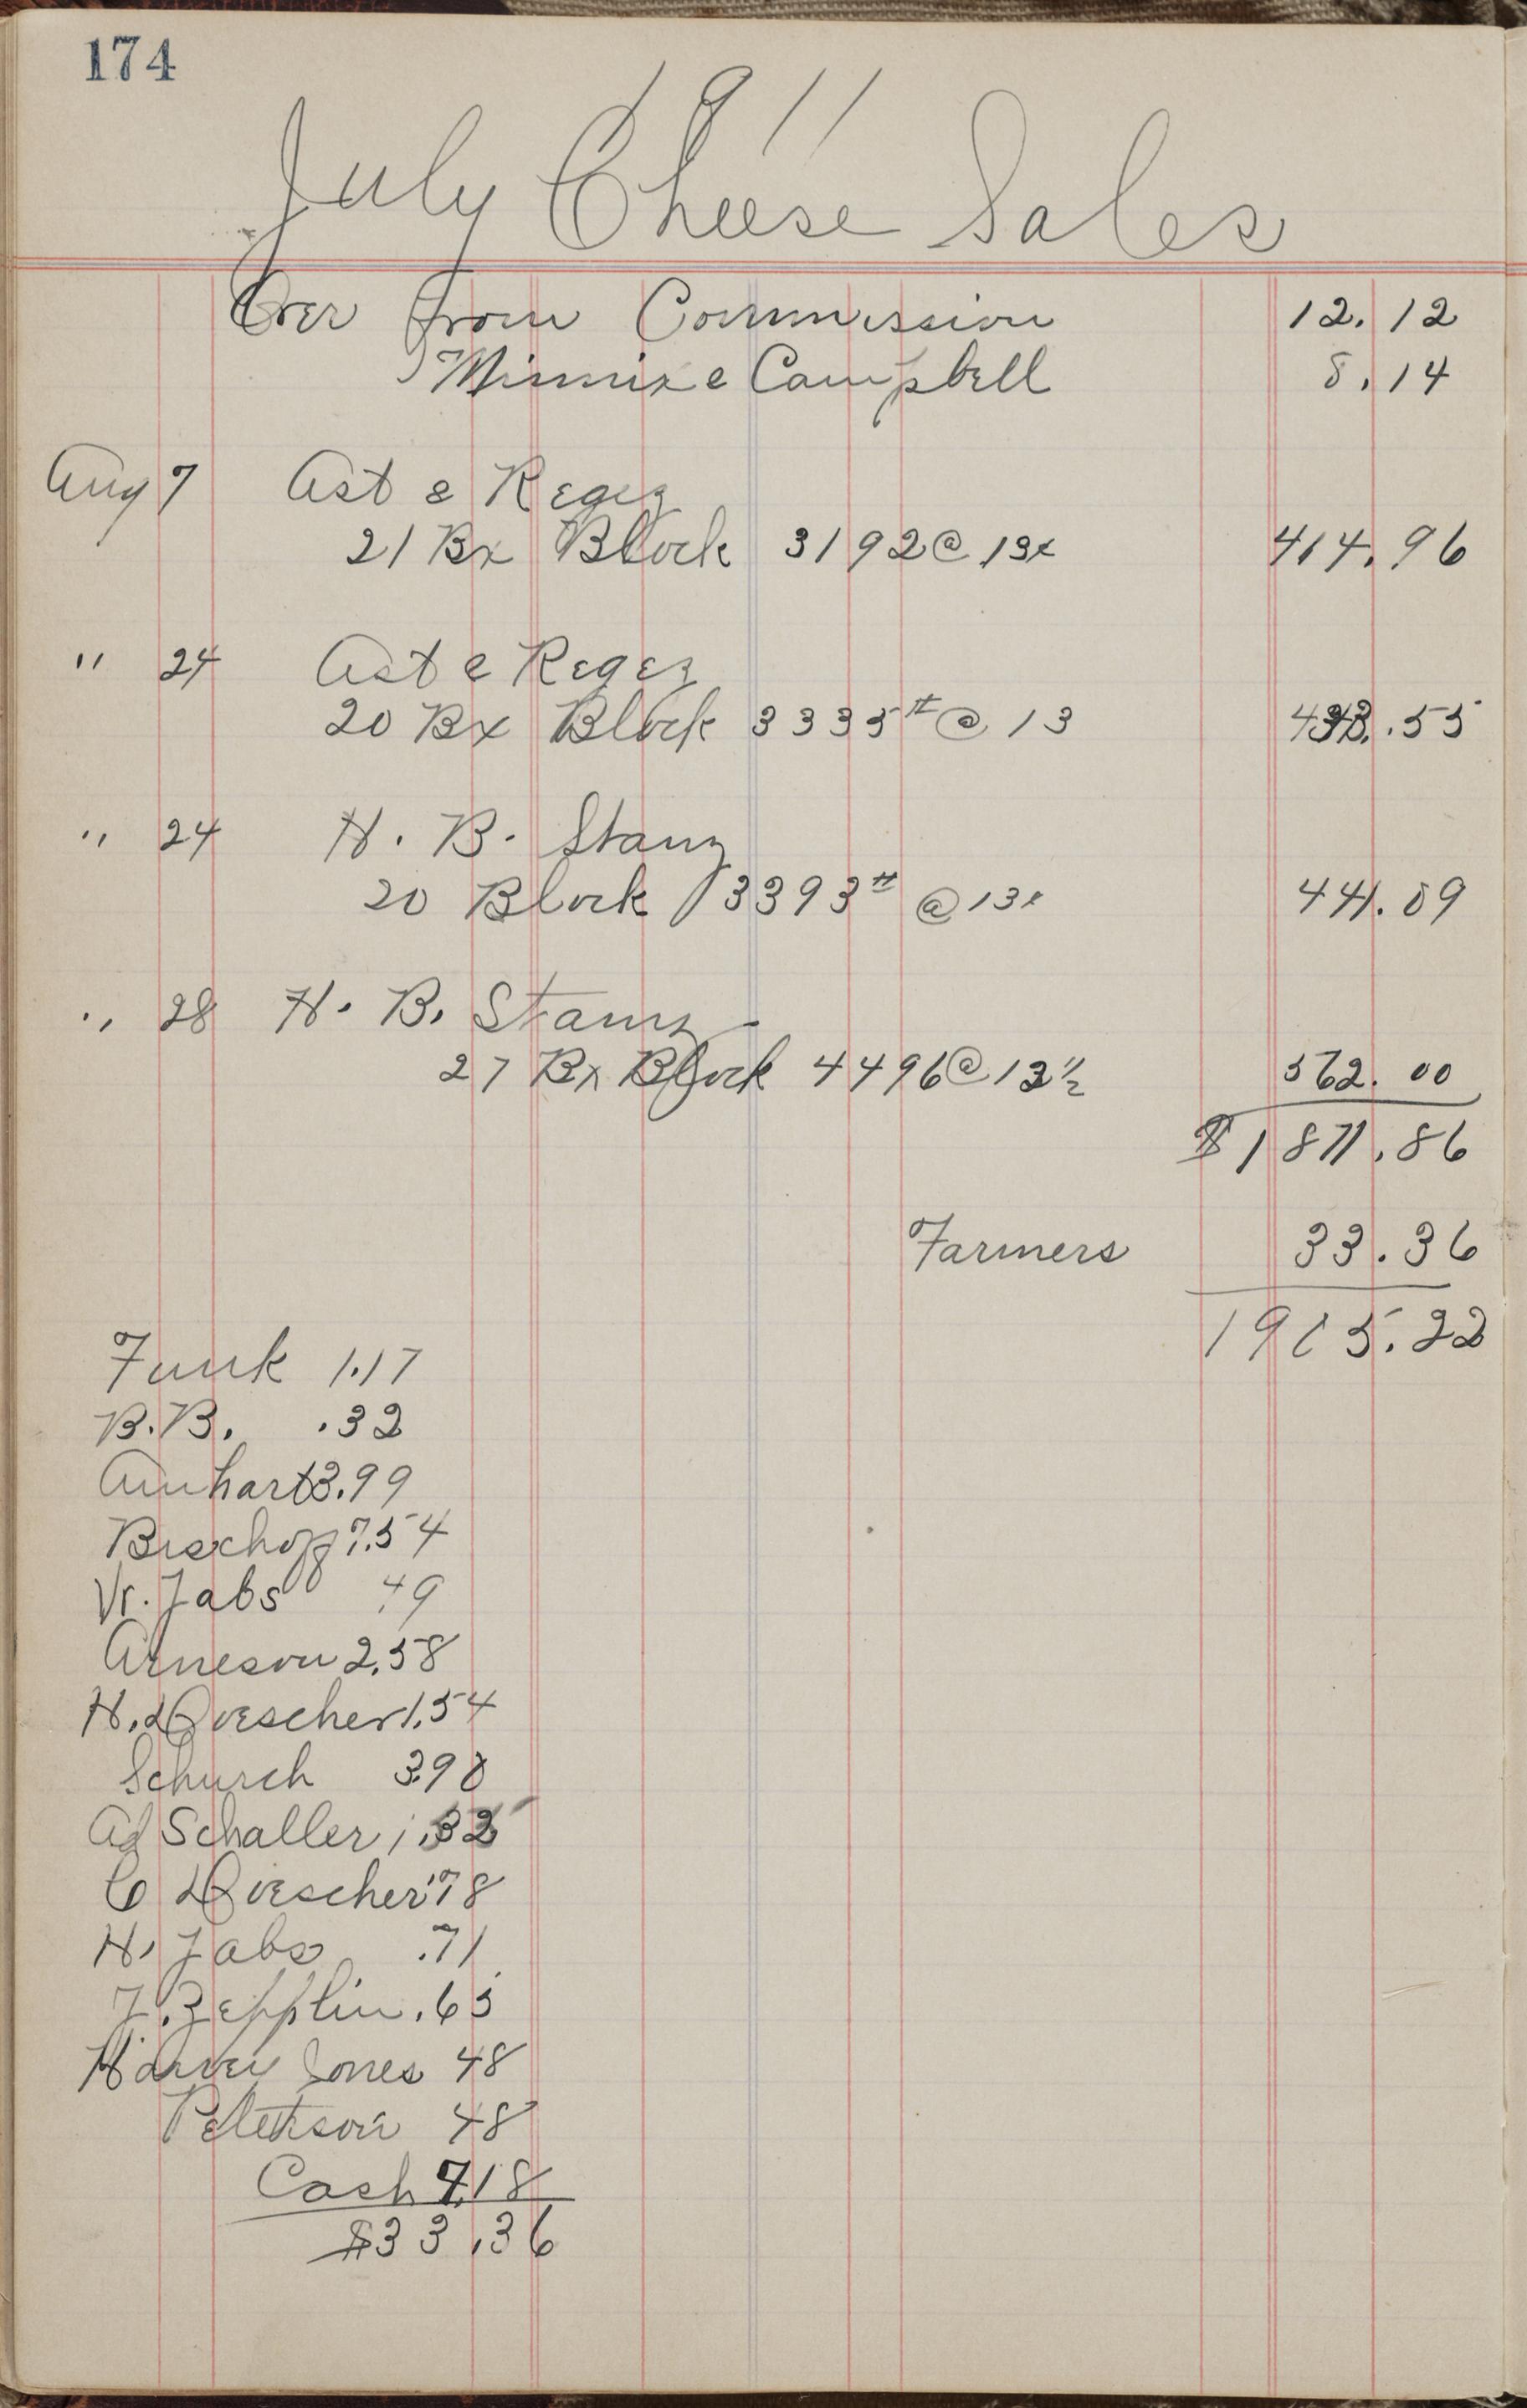 174
1911
July Cheese Sales
Over from Commission 12.12
Minnix & Campbell 8.14
Aug 7 Ast & Regez
21 Bx Block 3192 @ 13¢ 414.96
" 24 Ast & Regez
20 Bx Block 3335# @ 13 433.55
" 24 H. B. Stanz
20 Block 3393# @ 13¢ 441.09
" 28 H. B. Stanz
27 Bx Block 4496 @ 12 1/2 562.00
$1871.86
Farmers 33.36
1905.22
Funk 1.17
B.B. .32
Amhart 3.99
Bischoff 7.54
Jabs .49
Arneson 2.58
H. Doescher 1.54
Schurch 3.90
Ad Schaller 1.32
C Doescher .78
H. Jabs .71
J. Zepplin .65
Harvey Jones 48
Peterson 48
Cash 7.18
$33.36